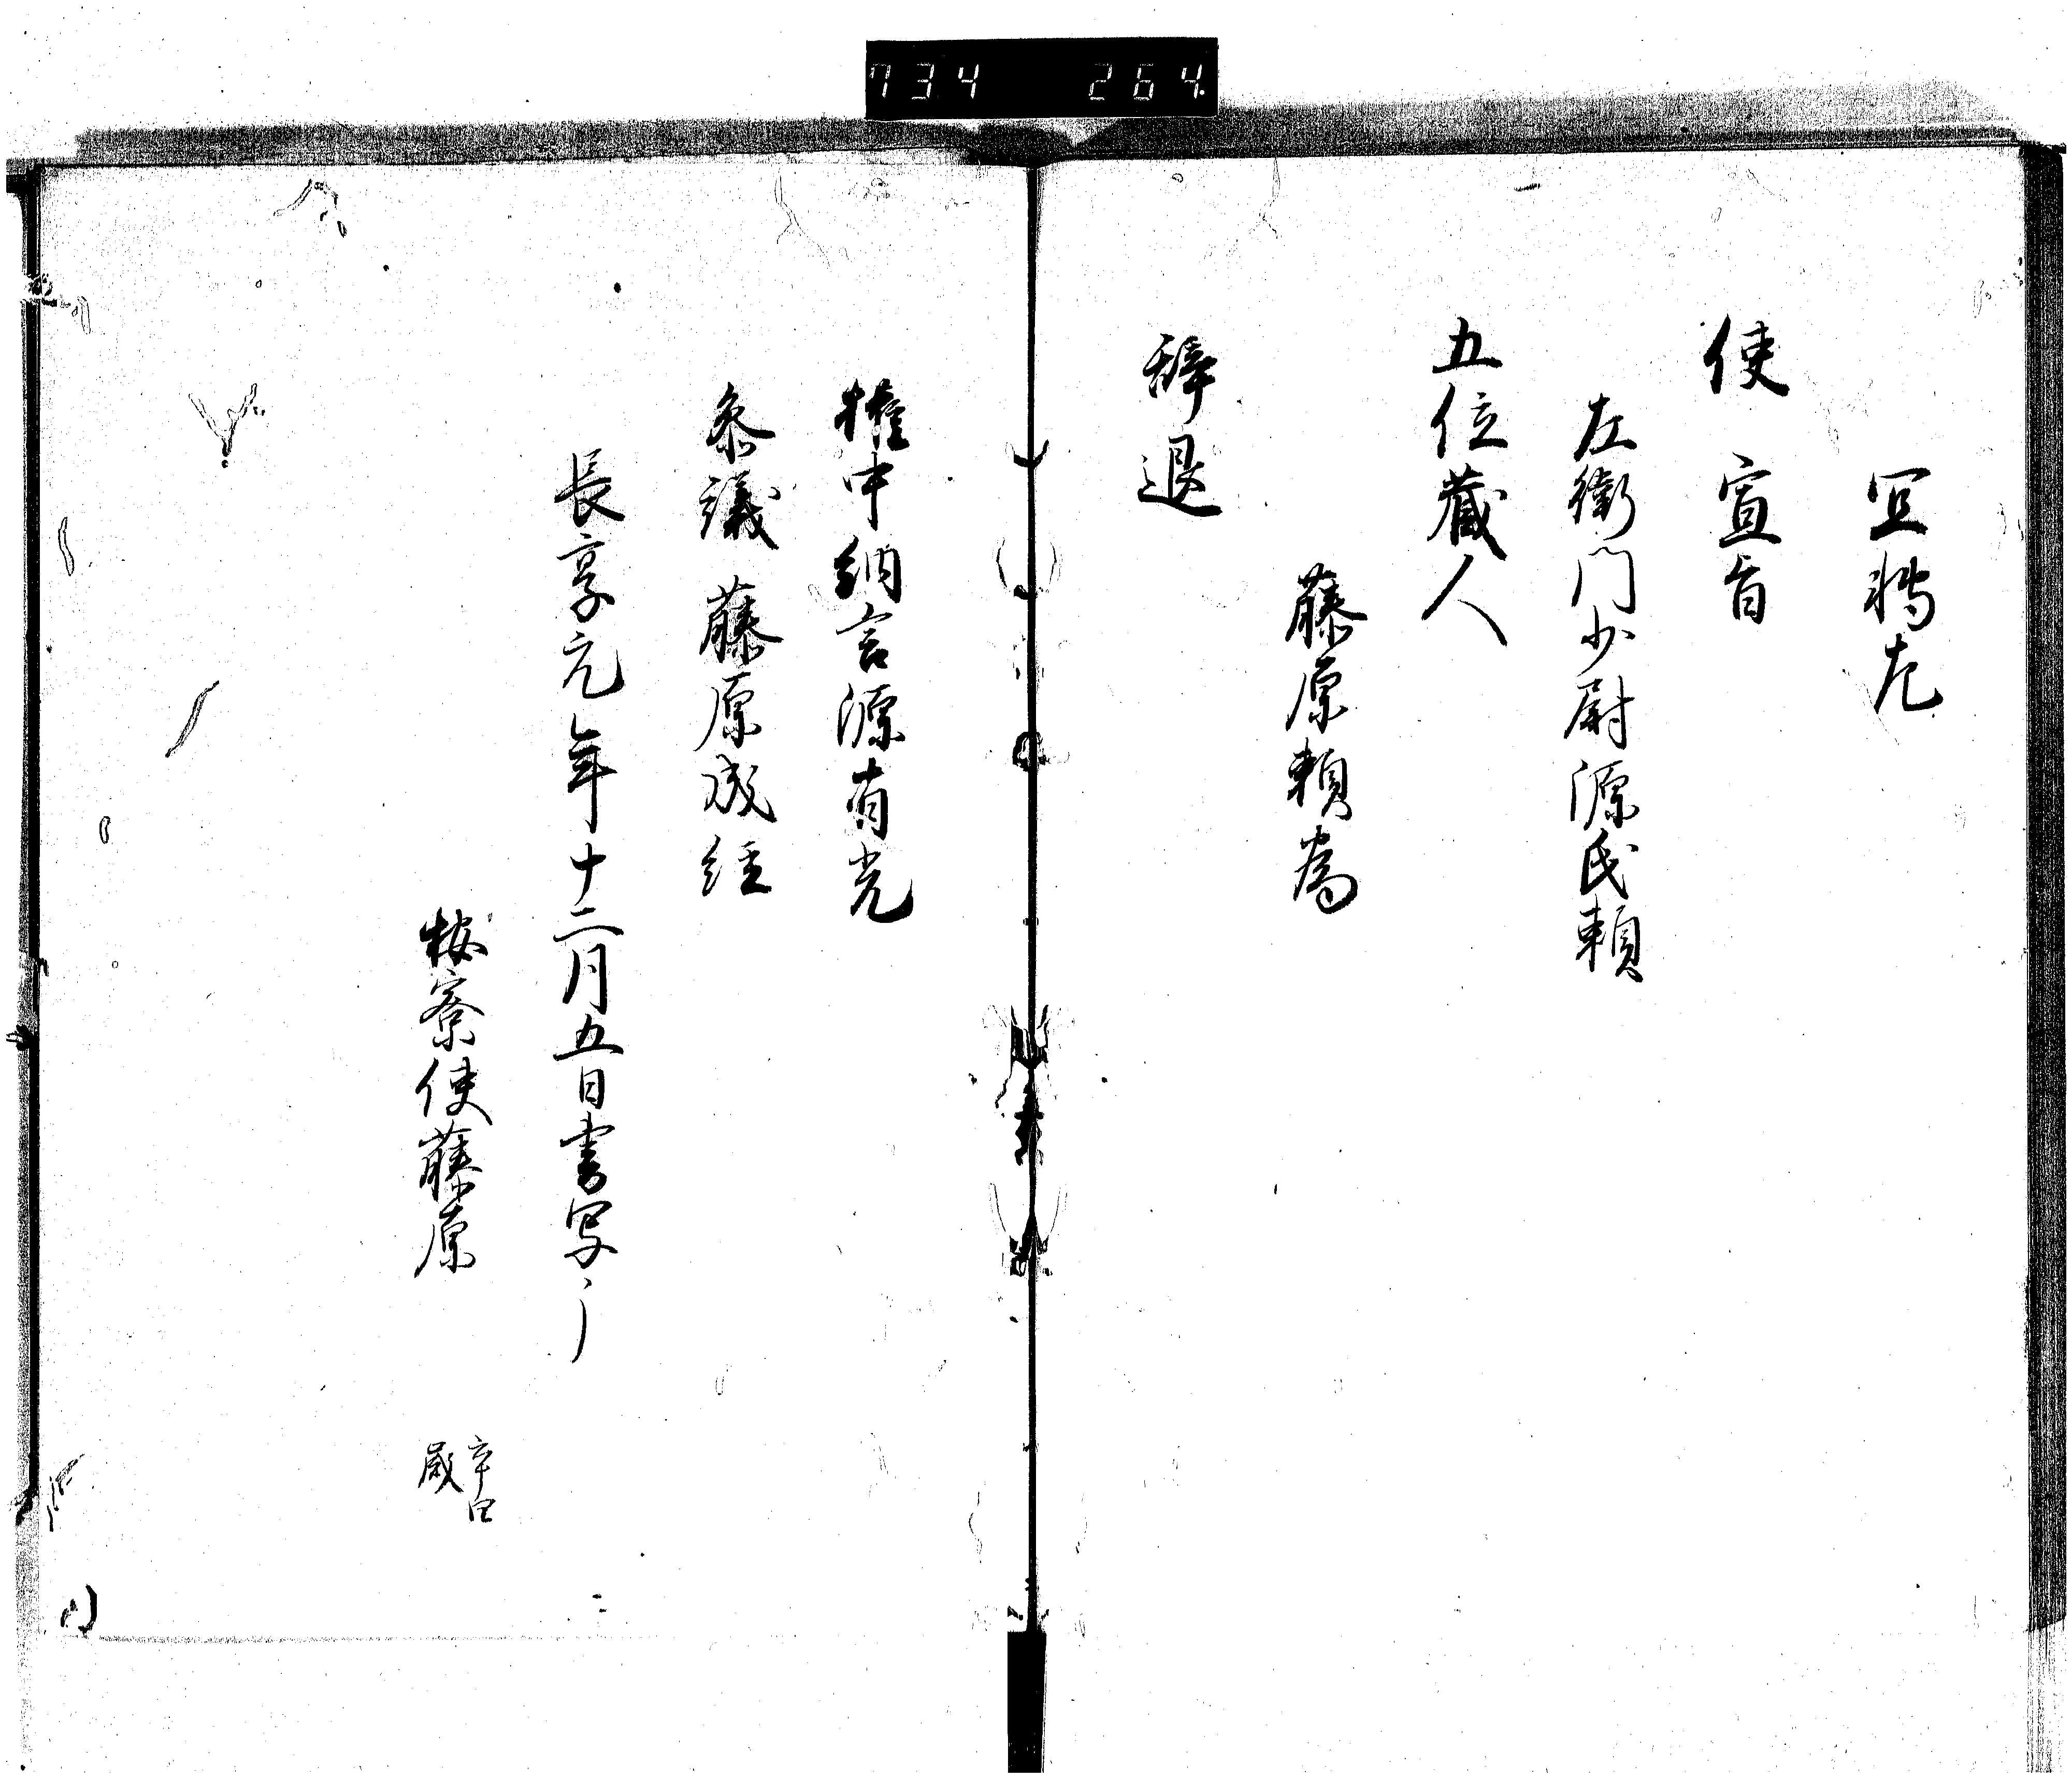 734 264
宜轉左
使 宣旨
左衛門少尉源氏頼
五位蔵人
藤原頼為
辞退
権中納言源有光
参議藤原成経
長享元年十二月五日書写了
按察使藤原